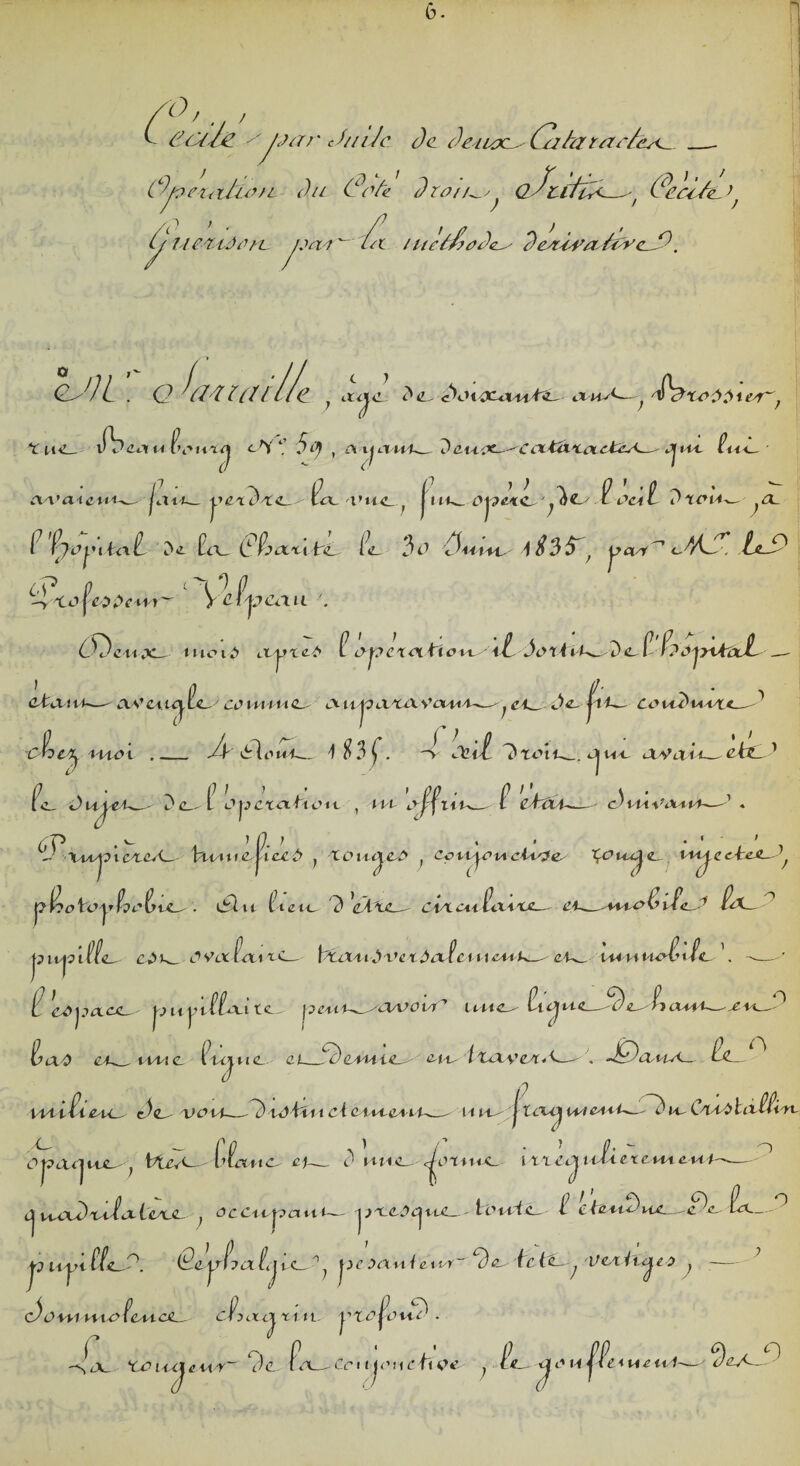 6.
Cécité par Suite de deux Cataractes —
Opération du Côté droit, Iritis, Cécité,
Guérison par la méthode dérivative.
Mr. Larraille, âgé de Soixante ans, Brossier,
rue Beaubourg No. 59, ayant deux cataractes qui lui
avaient fait perdre la vue, fut opéré, de l'oeil droit, à
l'hôpital de la Charité le 30 Juin 1835, par Mr. le
Professeur Velpeau.
Deux mois après l'opération il Sortit de l'hôpital —
étant aveugle comme auparavant, et Se fit conduire
chez moi. — A Août 1835. L'oeil droit, qui avait été
le Sujet de l'opération, m'offrit l'état Suivant.
Paupières tuméfiées, rouges, conjonctive rouge injectée,
photophobie. Au lieu d'être circulaire et mobile la
pupille est ovalaire transversalement et immobile.
l'espace pupillaire peut avoir une ligne de haut en
bas et une ligne et demie en travers. Dans le
milieu se voit distinctement un fragment du Cristallin
opaque, très blanc et d'une forme irrégulièrement
quadrilatère, occupant presque toute l'étendue de la
pupille. Céphalgie, pesanteur de tête, vertiges, —
Somnolence chagrin profond.
La rougeur de la conjonctive, le gonflement des